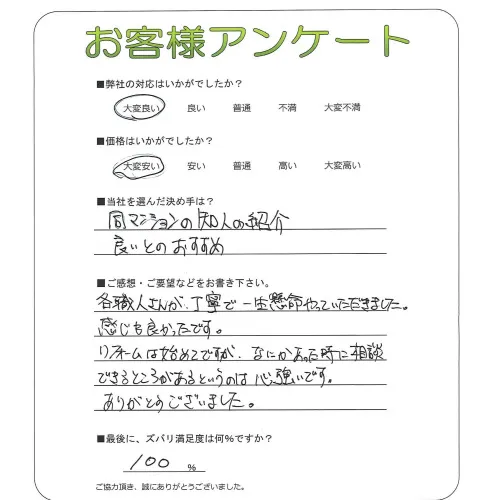 お客様アンケート
■弊社の対応はいかがでしたか？
大変良い 良い 普通 不満 大変不満
■価格はいかがでしたか？
大変安い 安い 普通 高い 大変高い
■当社を選んだ決め手は？
同マンションの知人の紹介
良いとのおすすめ
■ご感想・ご要望などをお書き下さい。
各職人さんが、丁寧で一生懸命やっていただきました。
感じも良かったです。
リフォームは始めてですが、なにかあった時に相談
できるところがあるというのは心強いです。
ありがとうございました。
■最後に、ズバリ満足度は何％ですか？
100 ％
ご協力頂き、誠にありがとうございました。